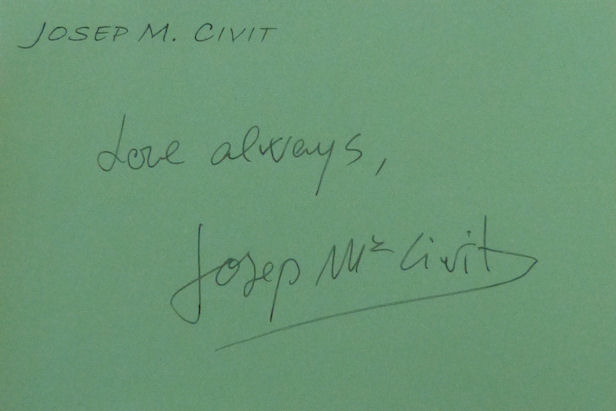 JOSEP M. CIVIT
Love always,
Josep Mª Civit